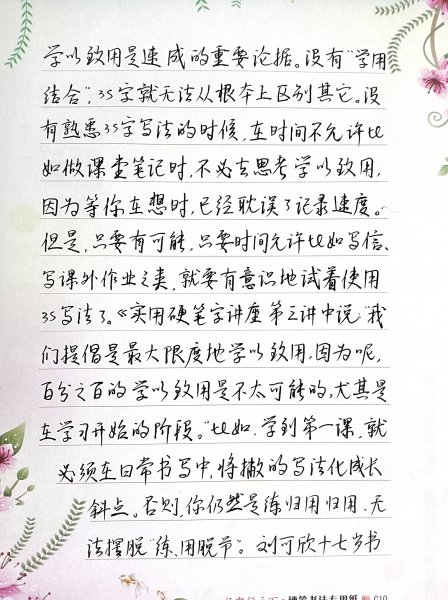 学以致用是速成的重要论据。没有“学用
结合”,35字就无法从根本上区别其它。没
有熟悉35字写法的时候,在时间不允许比
如做课堂笔记时,不必去思考学以致用,
因为等你在想时,已经耽误了记录速度。
但是,只要有可能,只要时间允许比如写信、
写课外作业之类,就要有意识地试着使用
35写法了。《实用硬笔字讲座第三讲中说:“我
们提倡是最大限度地学以致用,因为呢,
百分之百的学以致用是不太可能的,尤其是
在学习开始的阶段。”比如,学到第一课,就
必须在日常书写中,将撇的写法化成长
斜点。否则,你仍然是练归用归用,无
法摆脱“练、用脱节”。刘可欣十七岁书
硬笔书法专用纸 G10